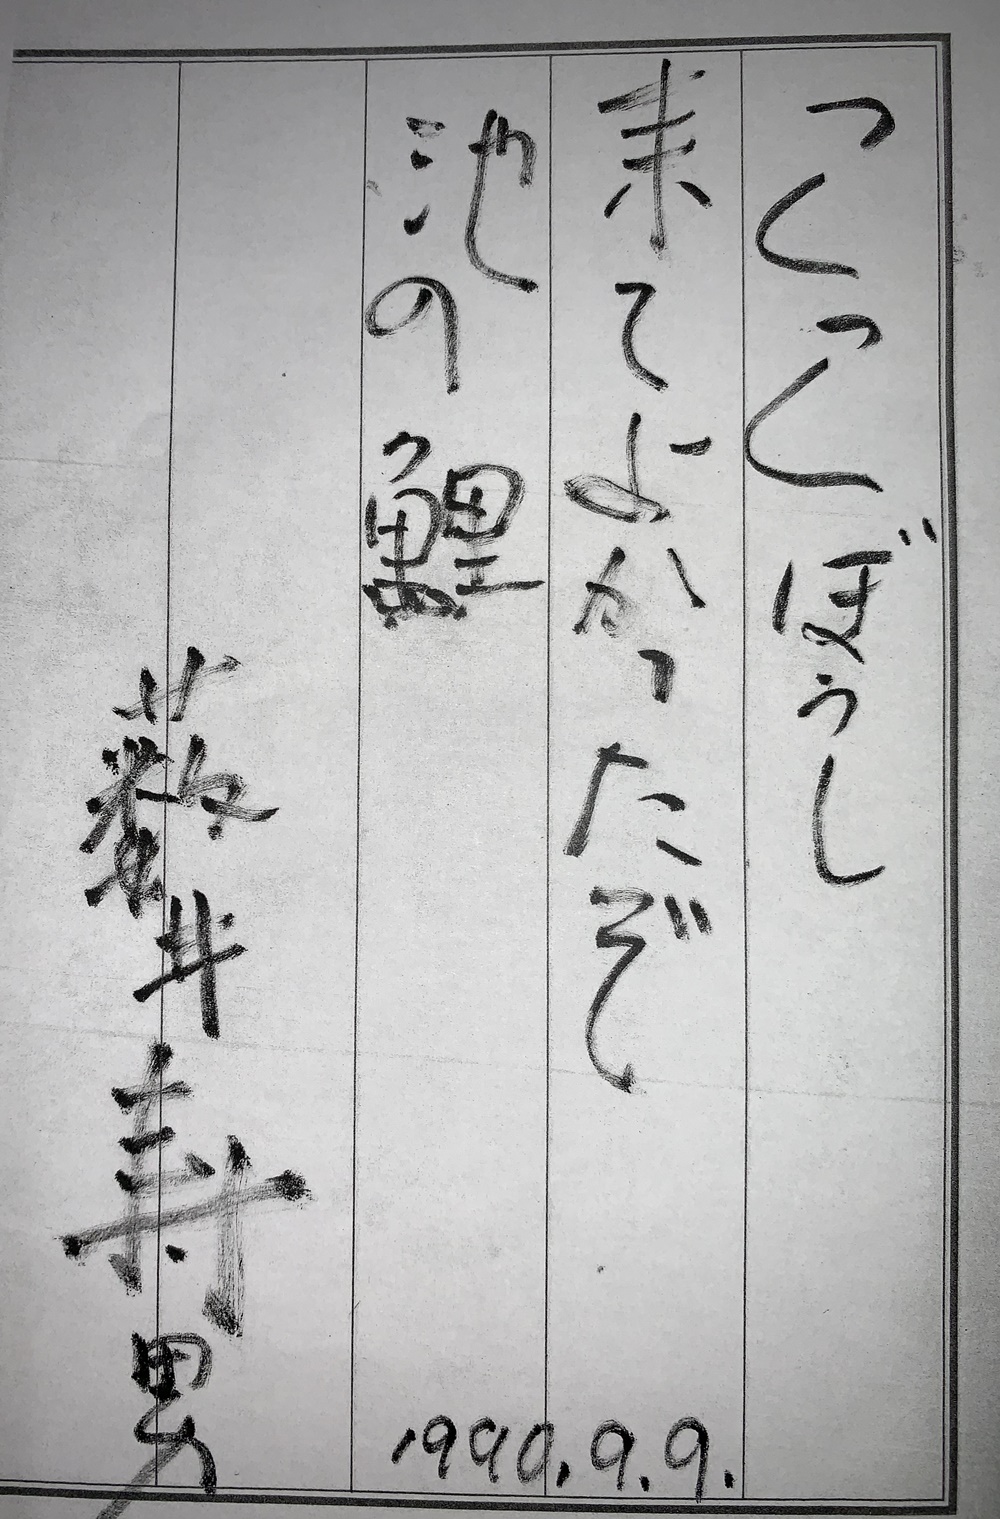 つくつくぼうし
来てよかったぞ
池の鯉
藪井寿男
1990.9.9.